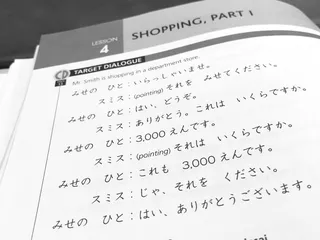 LESSON
4
SHOPPING, PART 1
CD
TARGET DIALOGUE
Mr. Smith is shopping in a department store.
みせの ひと：いらっしゃいませ。
スミス：(pointing) それを みせてください。
みせの ひと：はい、どうぞ。
スミス：ありがとう。これは いくらですか。
みせの ひと：3,000 えんです。
スミス：(pointing) それは いくらですか。
みせの ひと：これも 3,000 えんです。
スミス：じゃ、それを ください。
みせの ひと：はい、ありがとうございます。